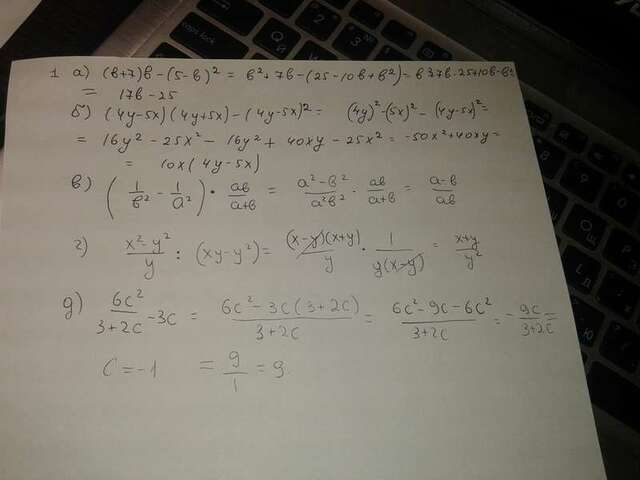 1 а) (в+7)в-(5-в)² = в²+7в-(25-10в+в²)=в²+7в-25+10в-в²
= 17в-25
б) (4y-5x)(4y+5x)-(4y-5x)²= (4y)²-(5x)²-(4y-5x)²=
= 16y²-25x²-16y²+40xy-25x²=-50x²+40xy=
= 10x(4y-5x)
в) (1/в² - 1/a²) · aв/a+в = a²-в²/a²в² · aв/a+в = a-в/aв
г) x²-y²/y : (xy-y²)= (x-y)(x+y)/y · 1/y(x-y) = x+y/y²
д) 6c²/3+2c -3c = 6c²-3c(3+2c)/3+2c = 6c²-9c-6c²/3+2c =-9c/3+2c=
c=-1 = 9/1 = 9.